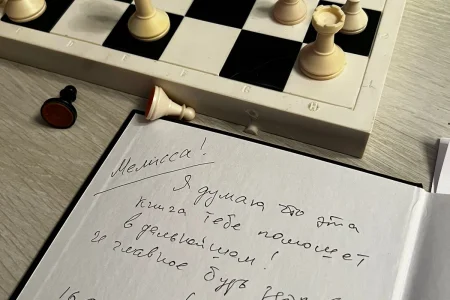 Мелисса!
Я думаю что эта
книга тебе поможет
в дальнейшем!
И главное будь